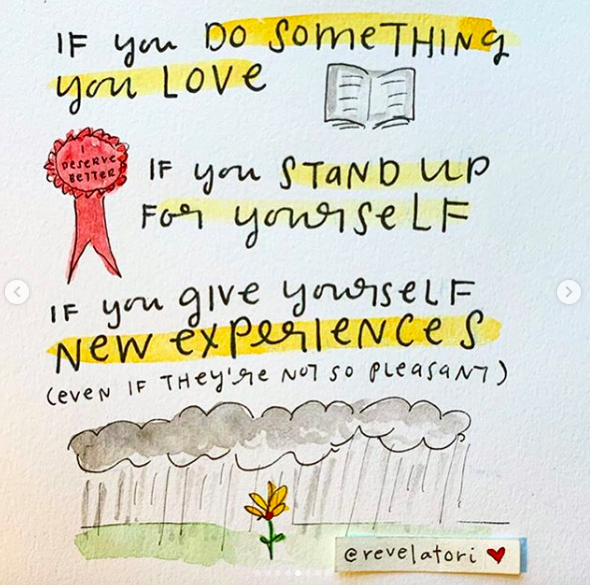 IF you DO SOMETHING
you LOVE
I
DESERVE
BETTER
IF you STAND UP
FOR yourSELF
IF you GIVE yourSELF
NEW EXPERIENCES
(EVEN IF THEY'RE NOT SO PLEASANT)
@revelatori